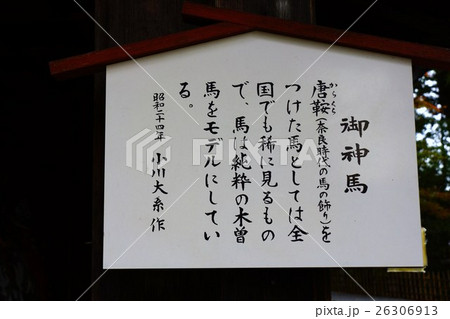 御神馬
唐鞍(奈良時代の馬の飾り)を
からくら
つけた馬としては全
国でも稀に見るもの
で、馬は純粋の木曽
馬をモデルにしてい
る。
昭和二十四年 小川大系作
PIXTA
pixta.jp - 26306913